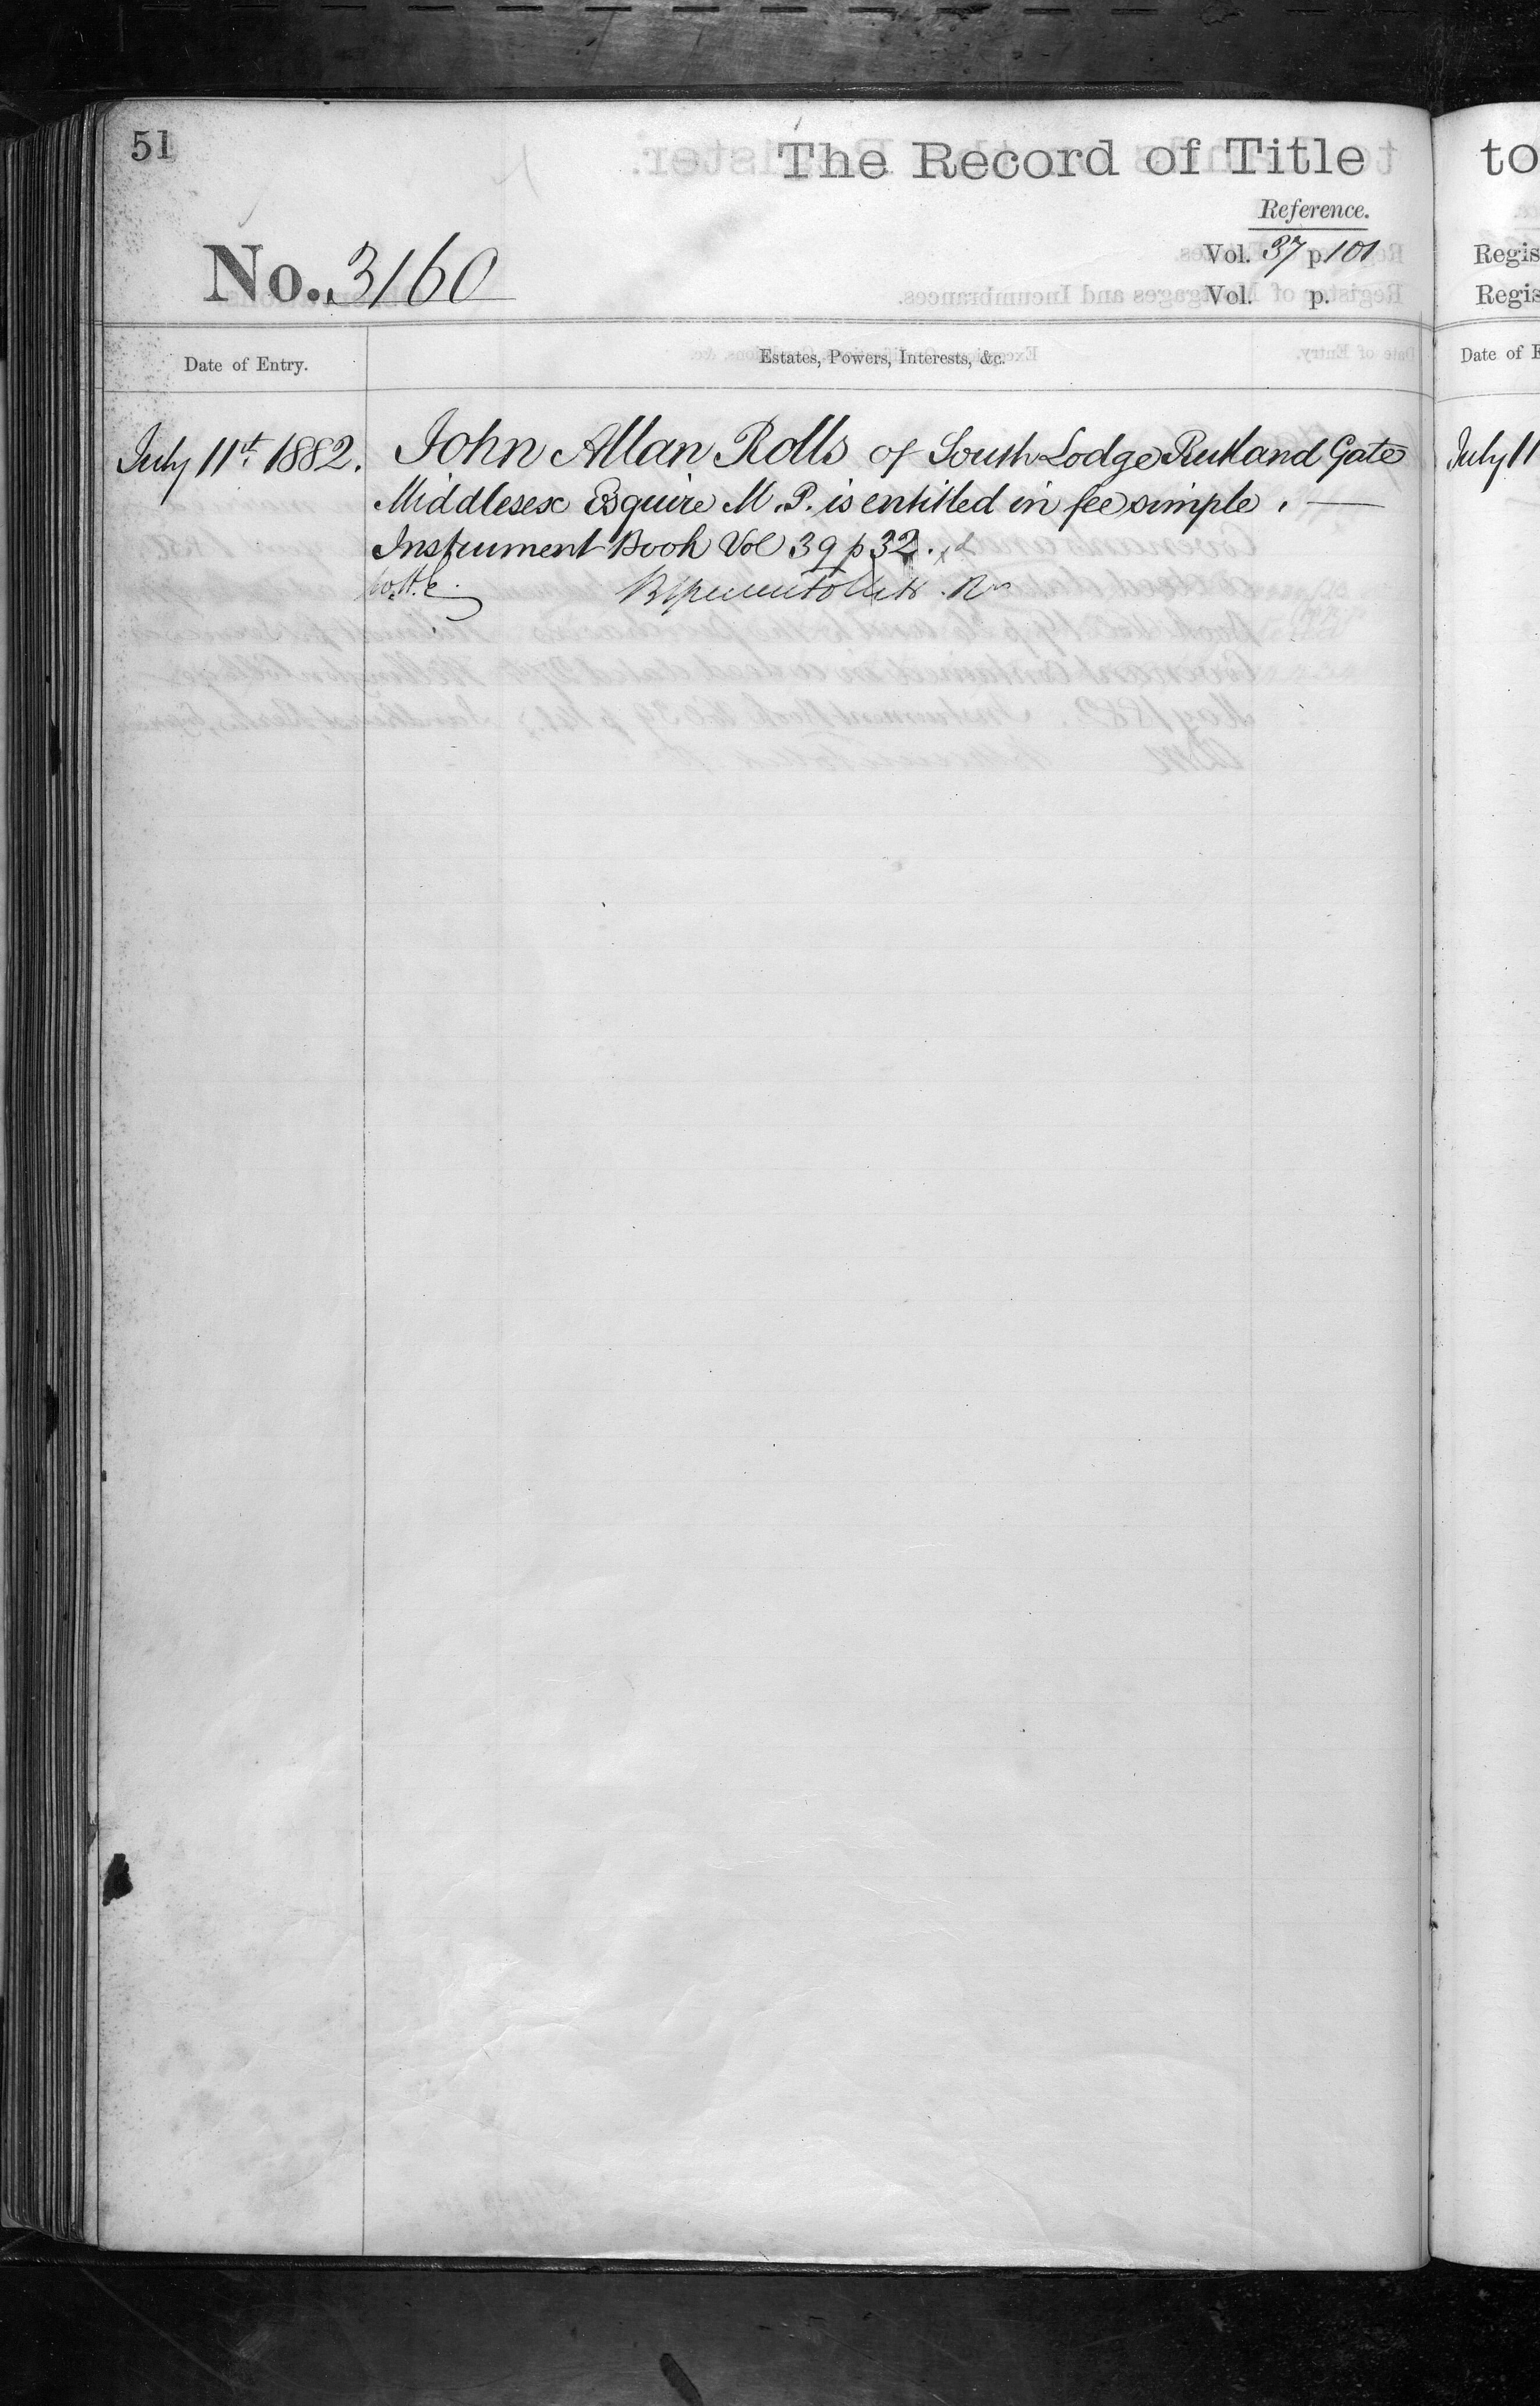 51
The Record of Title
Reference.
No. 3160
Vol. 37 p. 101
Vol. p.
Date of Entry.
Estates, Powers, Interests, &c.
July 11th 1882.
John Allan Rolls of South Lodge Rutland Gate
Middlesex Esquire M.P. is entitled in fee simple.
Instrument Book Vol 39 p 32.
to
Regis
Regis
Date of E
July 11